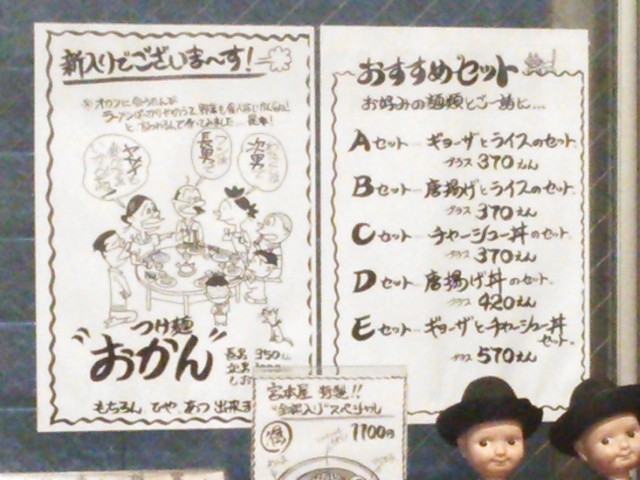 新入りでございま〜す!
つけ麺
"おかん"
長男 350
次男
もちろん ひや・あつ 出来ま
長男?
次男?
おすすめセット
お好みの麺類とご一緒に...
Aセット ギョーザとライスのセット
プラス 370えん
Bセット 唐揚げとライスのセット
プラス 370えん
Cセット チャーシュー丼のセット
プラス 370えん
Dセット 唐揚げ丼のセット
プラス 420えん
Eセット ギョーザとチャーシュー丼
セット
プラス 570えん
宮本屋 特製!!
"全部入り"スペシャル
1100円